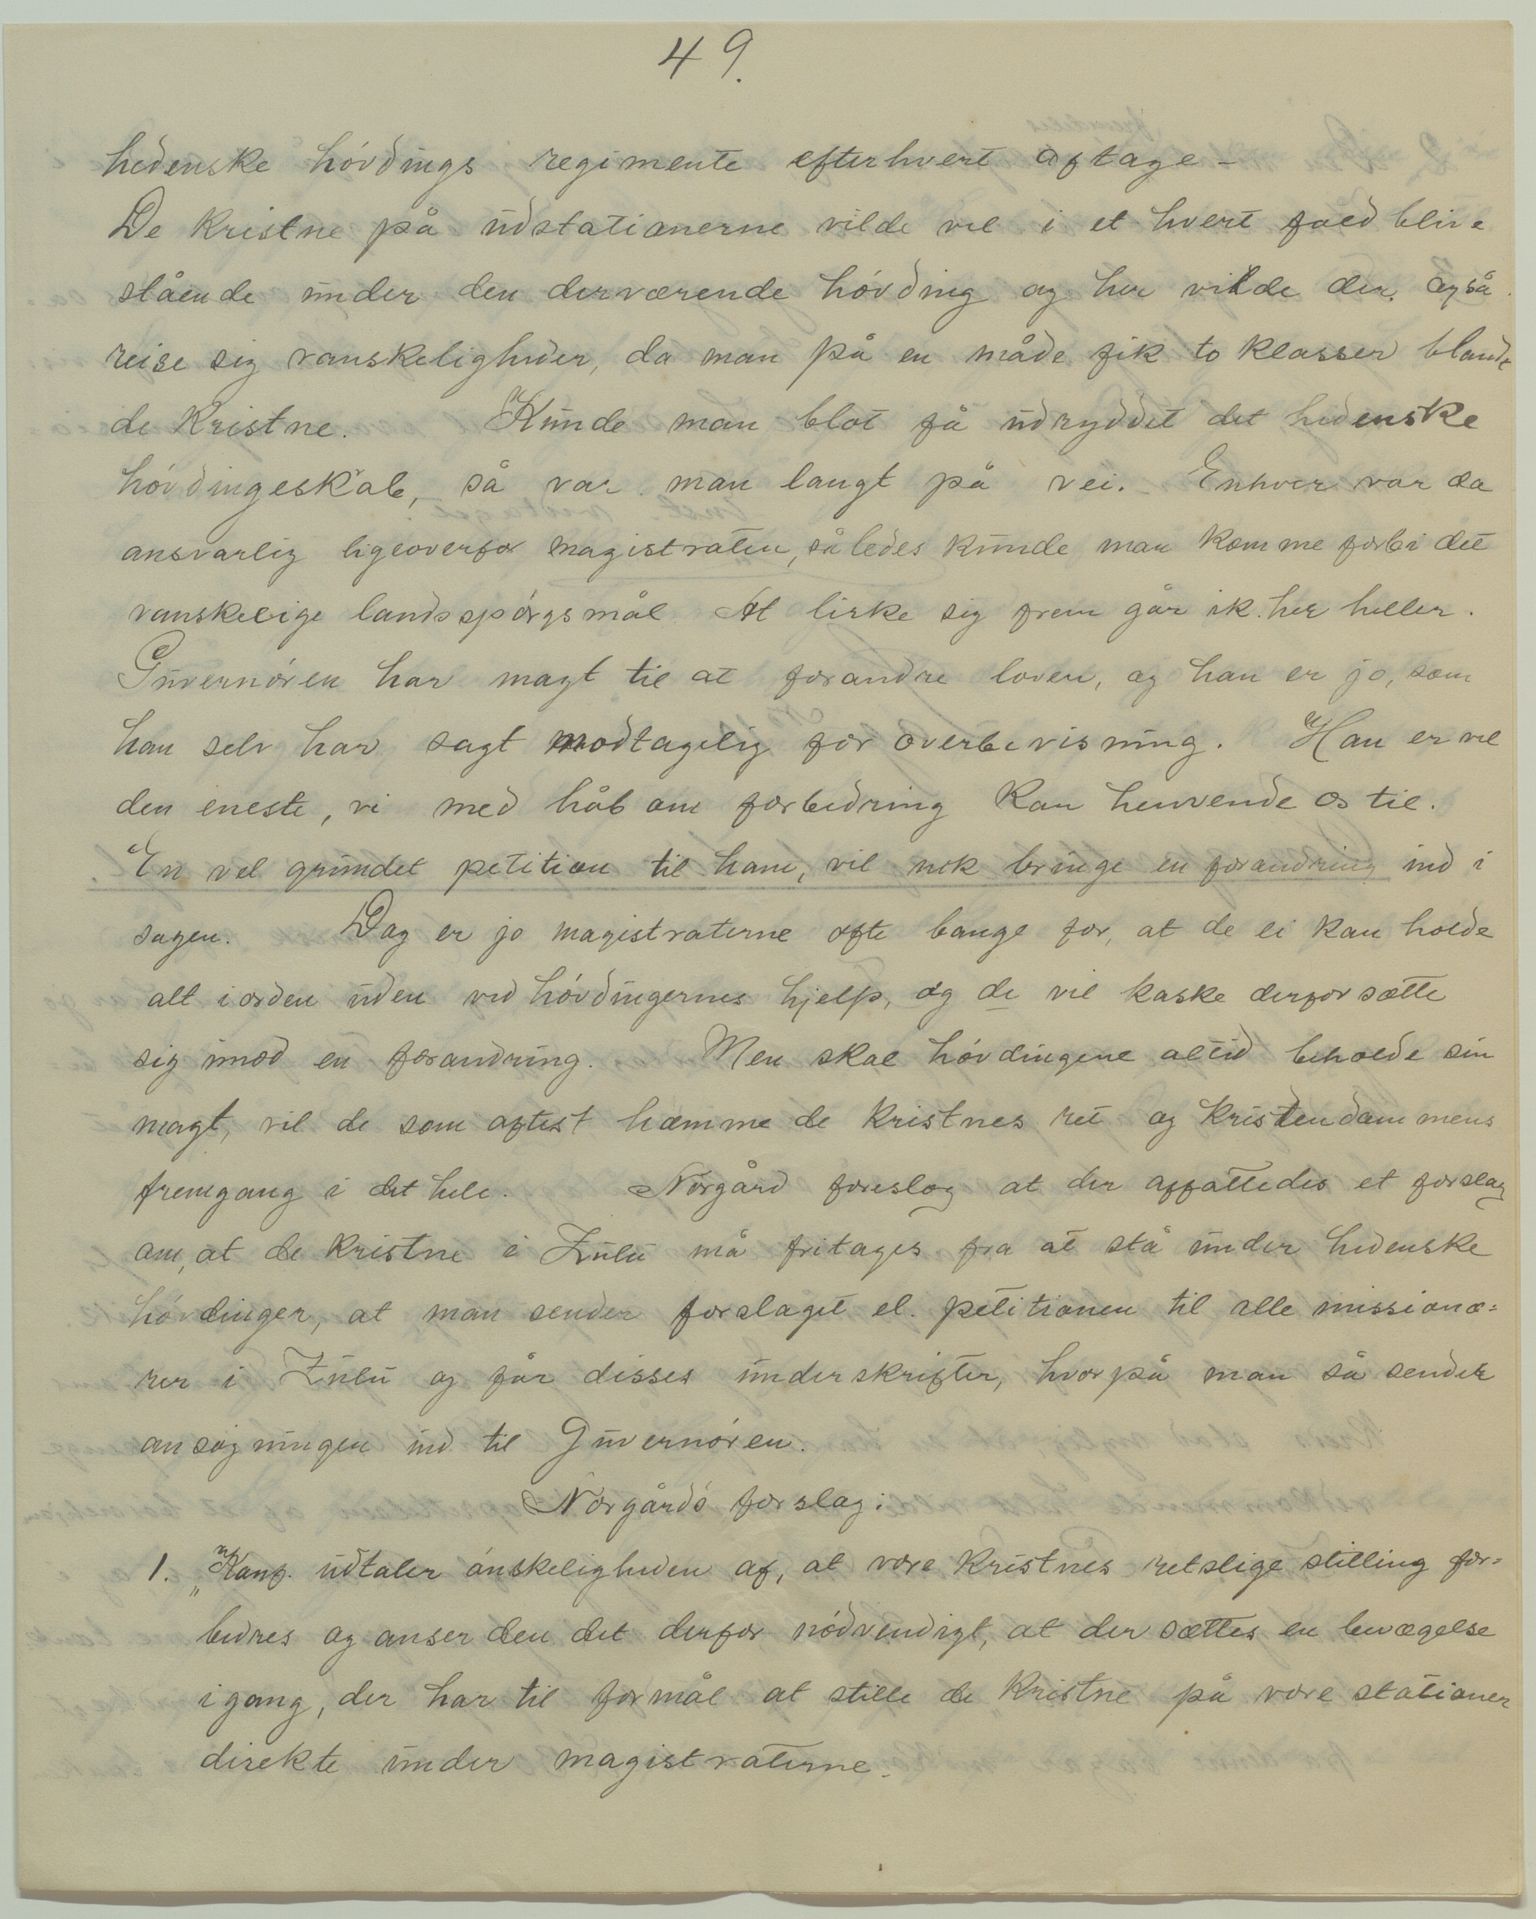 49.
hedenske hóvdings regimente efterhvert aftage –
De kristne på udstationerne vilde vel i et hvert fald blive
stående under den derværende hóvding og her vilde der også
reise sig vanskeligheder, da man på en måde fik to klasser blandt
de kristne. Kunde man blot få udryddet det hedenske
hóvdingeskab, så var man langt på vei. Enhver var da
ansvarlig ligeoverfor magistraten, således kunde man komme forbi det
vanskelige landsspórgsmål. At liske sig frem går ik. her heller.
Guvernóren har magt til at forandre loven, og han er jo, som
han selv har sagt modtagelig for overbevisning. Han er vel
den eneste, vi med håb om forbedring kan henvende os til.
En vel grundet petition til ham, vil nok bringe en forandring ind i
sagen. Dog er jo magistraterne ofte bange for, at de ei kan holde
alt i orden uden ved hóvdingernes hjelp, og de vil kaske derfor sætte
sig imod en forandring. Men skal hóvdingene altid beholde sin
magt, vil de som oftest hæmme de kristnes ret og kristendommens
fremgang i det hele. Norgård foreslog at der affattedes et forslag
om, at de kristne i Zulu må fritages fra at stå under hedenske
hóvdinger, at man sender forslaget el. petitionen til alle missionæ=
rer i Zulu og får disses underskrifter, hvorpå man så sender
ansógningen ind til Guvernóren.
Norgårds forslag:
1. „Konf. udtaler ónskeligheden af, at vore kristnes retslige stilling for=
bedres og anser den det derfor nódvendigt, at der sættes en bevægelse
igang, der har til formål at stille de kristne på vore stationer
direkte under magistraterne.